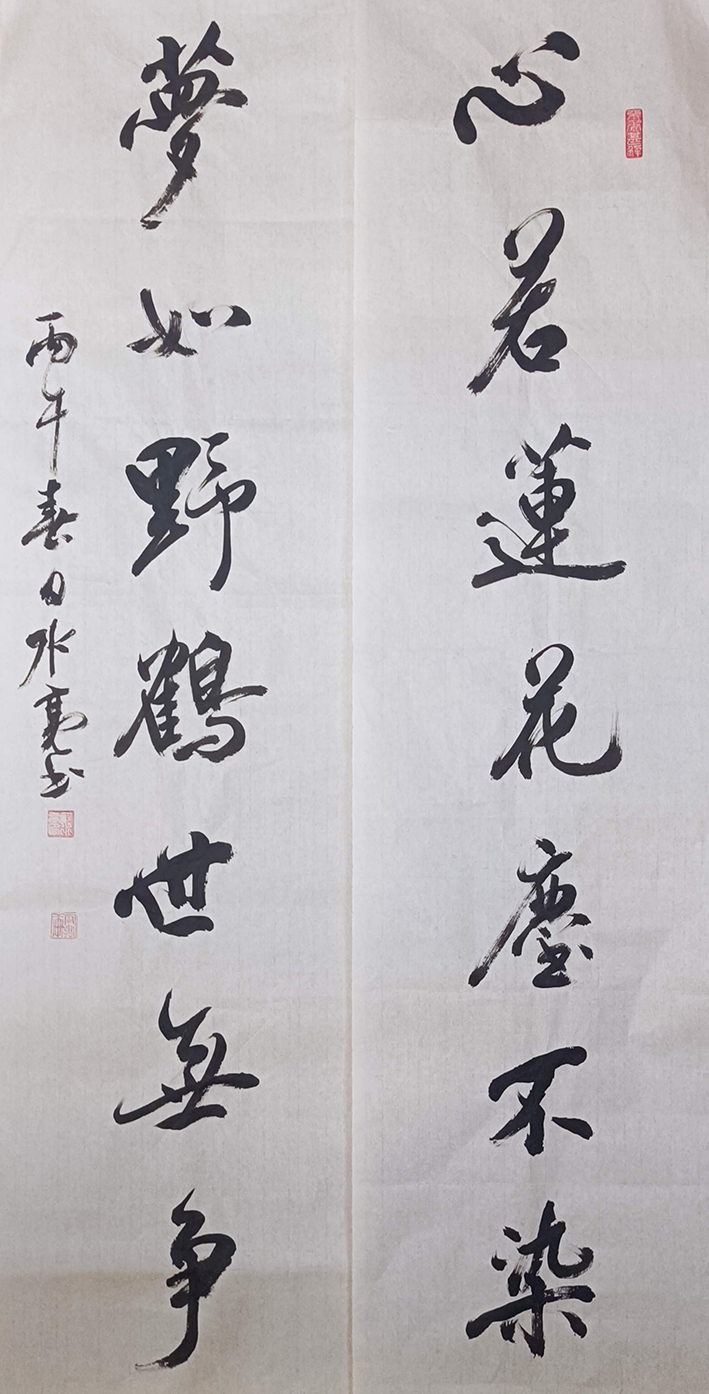 心若蓮花塵不染
夢如野鶴世無争
丙午春日水亮书